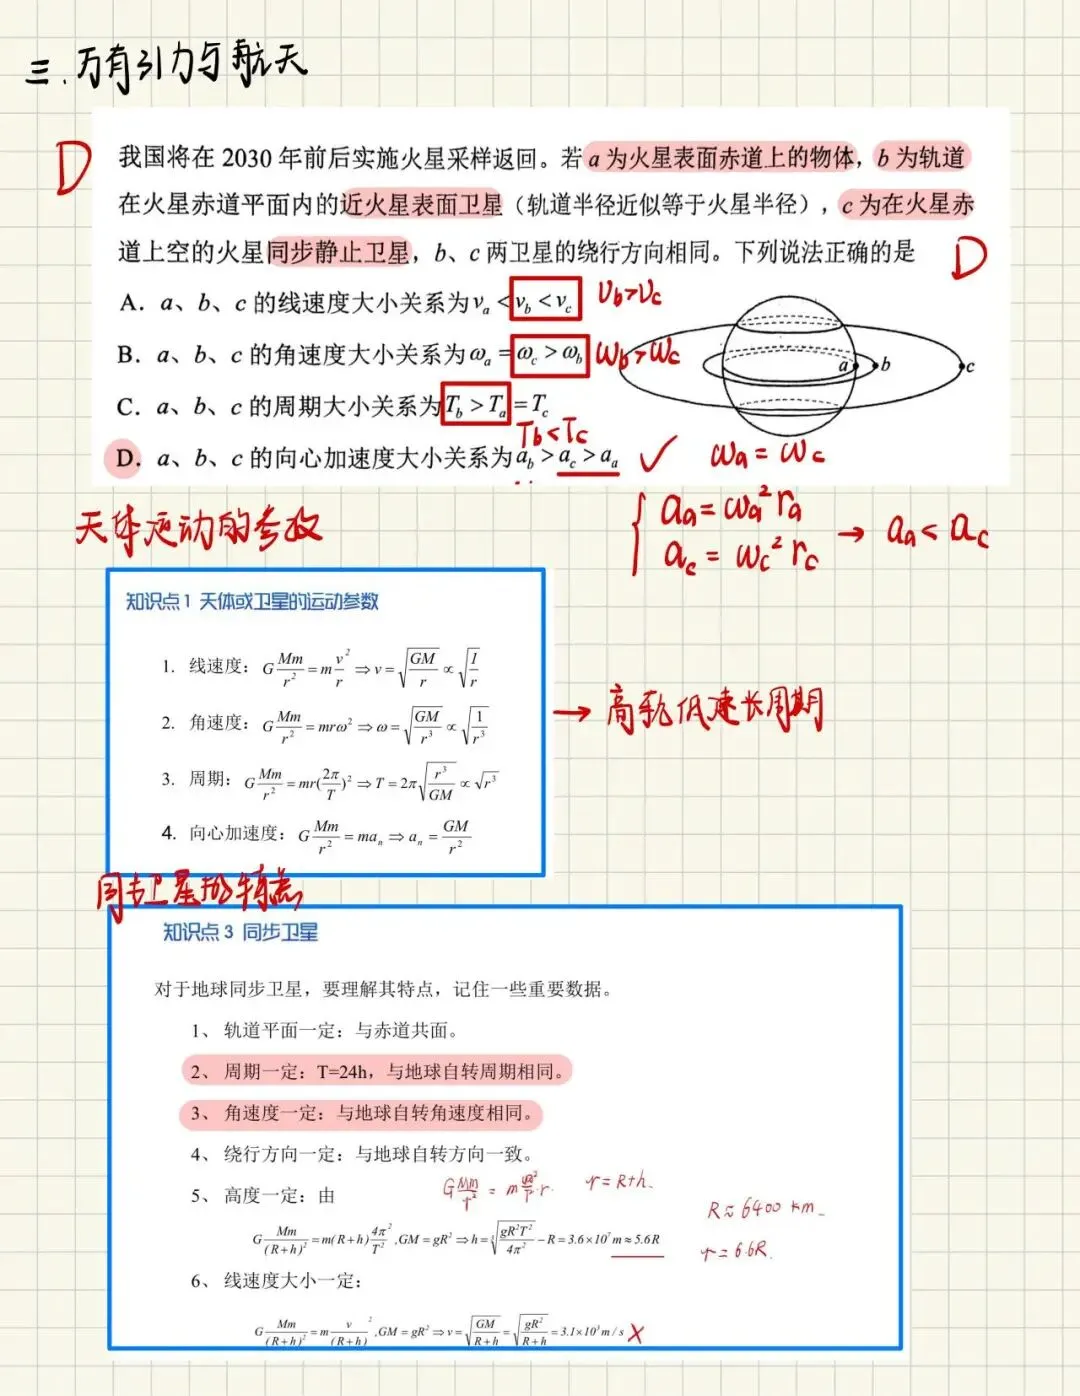 三.万有引力与航天
D
我国将在 2030 年前后实施火星采样返回。若 a 为火星表面赤道上的物体，b 为轨道
在火星赤道平面内的近火星表面卫星（轨道半径近似等于火星半径），c 为在火星赤
道上空的火星同步静止卫星，b、c 两卫星的绕行方向相同。下列说法正确的是
D
A．a、b、c 的线速度大小关系为 vₐ < v_b < v_c
v_b>v_c
B．a、b、c 的角速度大小关系为 ωₐ = ω_c > ω_b
ω_b>ω_c
a b c
C．a、b、c 的周期大小关系为 T_b > Tₐ = T_c
T_b<T_c
D．a、b、c 的向心加速度大小关系为 a_b > a_c > aₐ ✓
ωₐ = ω_c
天体运动的参数
aₐ = ωₐ² rₐ
a_c = ω_c² r_c
→ aₐ < a_c
知识点1 天体或卫星的运动参数
1. 线速度：G Mm/r² = m v²/r ⇒ v = √(GM/r) ∝ √(1/r)
2. 角速度：G Mm/r² = mrω² ⇒ ω = √(GM/r³) ∝ √(1/r³)
→ 高轨低速长周期
3. 周期：G Mm/r² = mr(2π/T)² ⇒ T = 2π√(r³/GM) ∝ √r³
4. 向心加速度：G Mm/r² = maₙ ⇒ aₙ = GM/r²
同步卫星的特点
知识点3 同步卫星
对于地球同步卫星，要理解其特点，记住一些重要数据。
1、 轨道平面一定：与赤道共面。
2、 周期一定：T=24h，与地球自转周期相同。
3、 角速度一定：与地球自转角速度相同。
4、 绕行方向一定：与地球自转方向一致。
5、 高度一定：由
r=R+h.
R≈6400 km.
G Mm/(R+h)² = m(R+h) 4π²/T² ,GM = gR² ⇒ h = ∛(gR²T²/4π²) − R = 3.6×10⁷ m ≈ 5.6R
r=6.6R.
6、 线速度大小一定：
G Mm/(R+h)² = m v²/(R+h) ,GM = gR² ⇒ v = √(GM/(R+h)) = √(gR²/(R+h)) = 3.1×10³ m/s ×